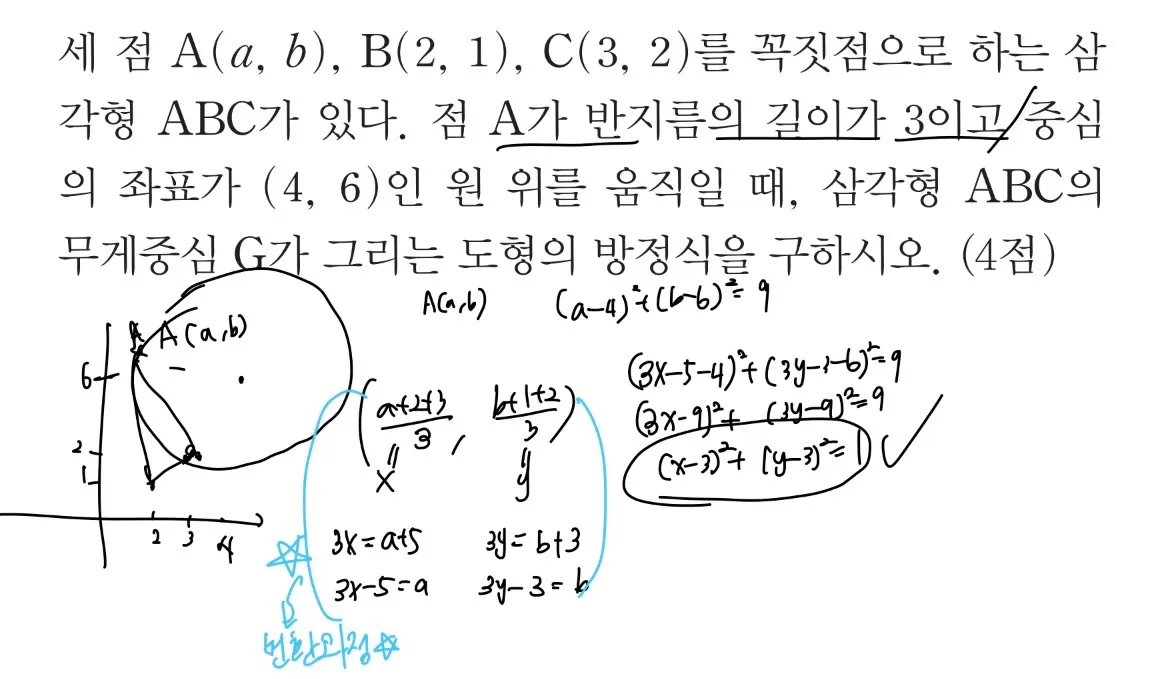 세 점 A(a, b), B(2, 1), C(3, 2)를 꼭짓점으로 하는 삼
각형 ABC가 있다. 점 A가 반지름의 길이가 3이고 중심
의 좌표가 (4, 6)인 원 위를 움직일 때, 삼각형 ABC의
무게중심 G가 그리는 도형의 방정식을 구하시오. (4점)
A(a,b)
(a-4)²+(b-6)²=9
A(a,b)
6
2
1
2 3 4
(a+2+3/3, b+1+2/3)
x y
3x=a+5 3y=b+3
3x-5=a 3y-3=b
변환과정
(3x-5-4)²+(3y-3-6)²=9
(3x-9)²+(3y-9)²=9
(x-3)²+(y-3)²=1